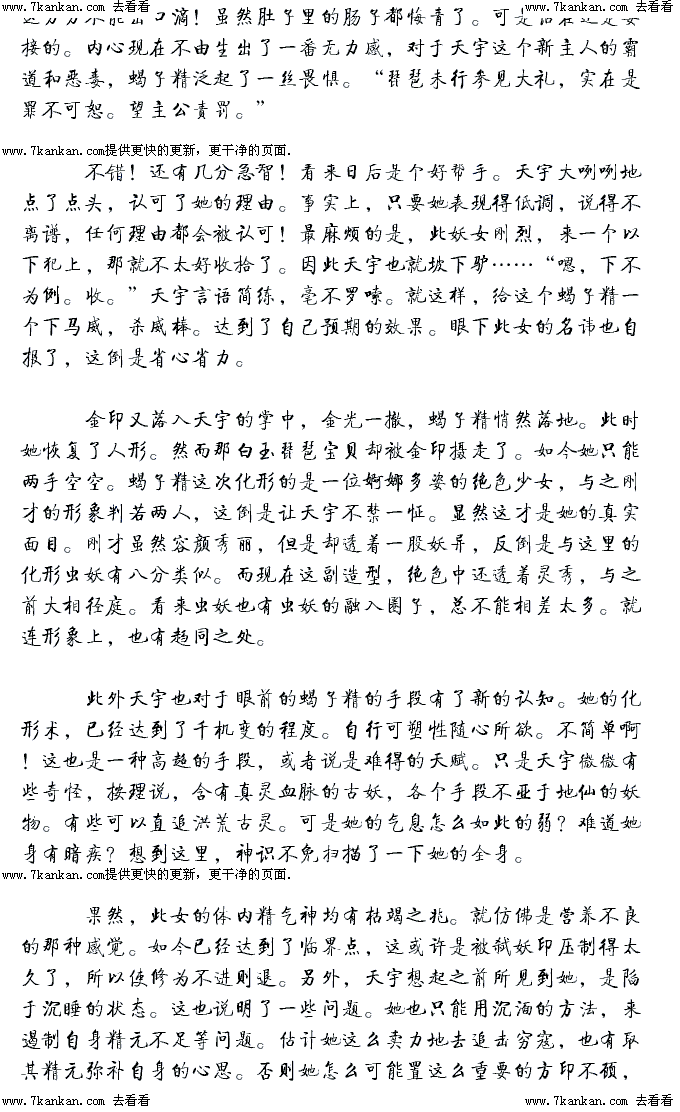 www.7kankan.com 去看看 www.7kankan.com 去看看
接的。内心现在不由生出了一番无力感，对于天宇这个新主人的霸
道和恶毒，蝎子精泛起了一丝畏惧。“琵琶未行参见大礼，实在是
罪不可恕。望主公责罚。”
www.7kankan.com提供更快的更新，更干净的页面.
不错！还有几分急智！看来日后是个好帮手。天宇大咧咧地
点了点头，认可了她的理由。事实上，只要她表现得低调，说得不
离谱，任何理由都会被认可！最麻烦的是，此妖女刚烈，来一个以
下犯上，那就不太好收拾了。因此天宇也就坡下驴……“嗯，下不
为例。收。”天宇言语简练，毫不罗嗦。就这样，给这个蝎子精一
个下马威，杀威棒。达到了自己预期的效果。眼下此女的名讳也自
报了，这倒是省心省力。
金印又落入天宇的掌中，金光一撤，蝎子精悄然落地。此时
她恢复了人形。然而那白玉琵琶宝贝却被金印摄走了。如今她只能
两手空空。蝎子精这次化形的是一位婀娜多姿的绝色少女，与之刚
才的形象判若两人，这倒是让天宇不禁一怔。显然这才是她的真实
面目。刚才虽然容颜秀丽，但是却透着一股妖异，反倒是与这里的
化形虫妖有八分类似。而现在这副造型，绝色中还透着灵秀，与之
前大相径庭。看来虫妖也有虫妖的融入圈子，总不能相差太多。就
连形象上，也有趋同之处。
此外天宇也对于眼前的蝎子精的手段有了新的认知。她的化
形术，已经达到了千机变的程度。自行可塑性随心所欲。不简单啊
！这也是一种高超的手段，或者说是难得的天赋。只是天宇微微有
些奇怪，按理说，含有真灵血脉的古妖，各个手段不亚于地仙的妖
物。有些可以直追洪荒古灵。可是她的气息怎么如此的弱？难道她
身有暗疾？想到这里，神识不免扫描了一下她的全身。
www.7kankan.com提供更快的更新，更干净的页面.
果然，此女的体内精气神均有枯竭之兆。就仿佛是营养不良
的那种感觉。如今已经达到了临界点，这或许是被弑妖印压制得太
久了，所以使修为不进则退。另外，天宇想起之前所见到她，是陷
于沉睡的状态。这也说明了一些问题。她也只能用沉湎的方法，来
遏制自身精元不足等问题。估计她这么卖力地去追击穷寇，也有取
其精元弥补自身的心思。否则她怎么可能置这么重要的方印不顾，
www.7kankan.com 去看看 www.7kankan.com 去看看